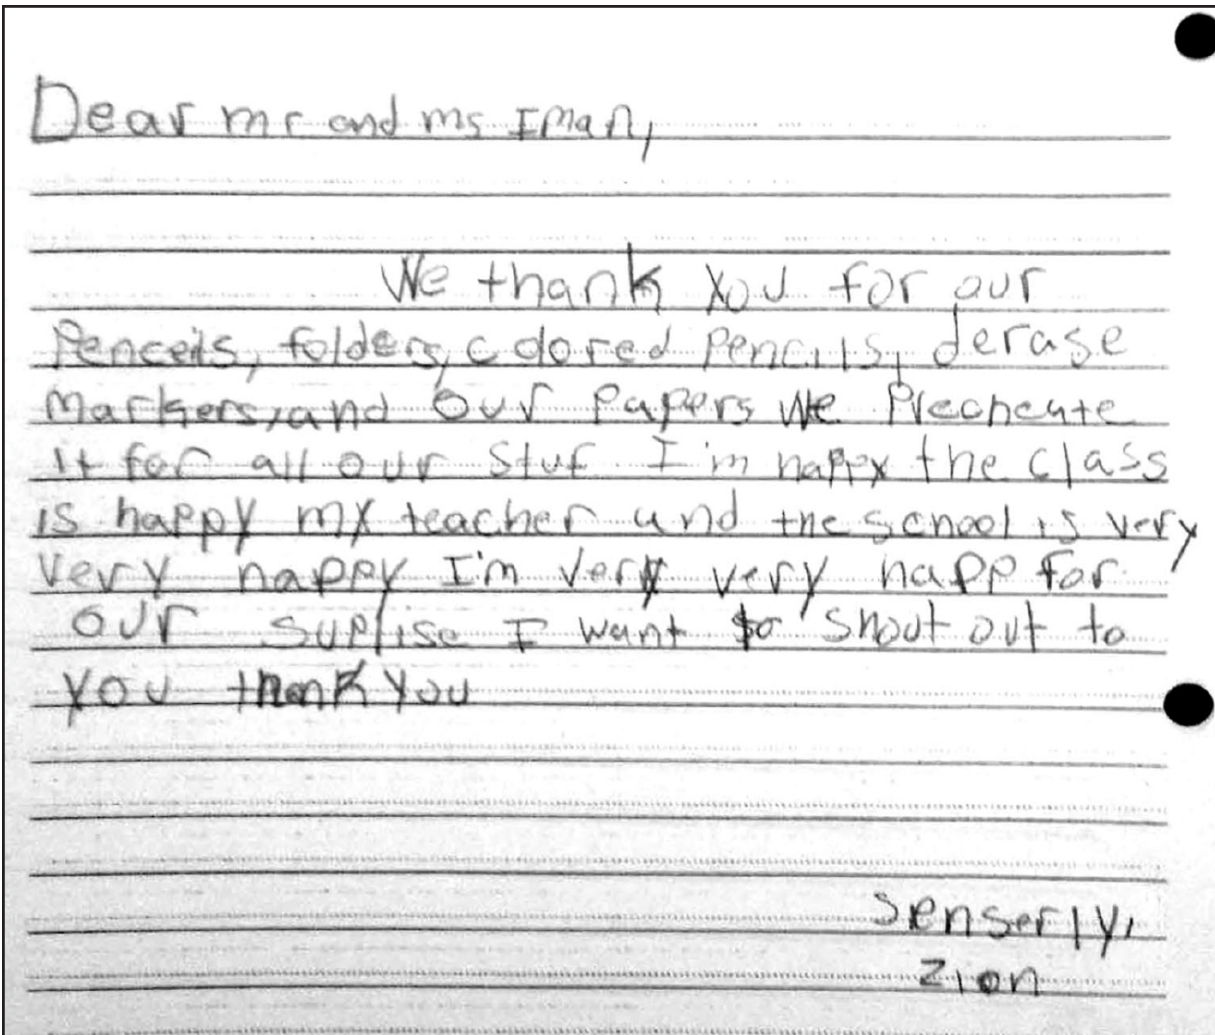 Dear mr and ms Iman,
We thank you for our
Penceils, folders, colored pencils, derase
markers, and our papers We Precheate
it for all our stuf I'm happy the class
is happy my teacher and the school is very
very happy I'm very very happ for
our suplise I want to shout out to
you thank you
senserly,
zion